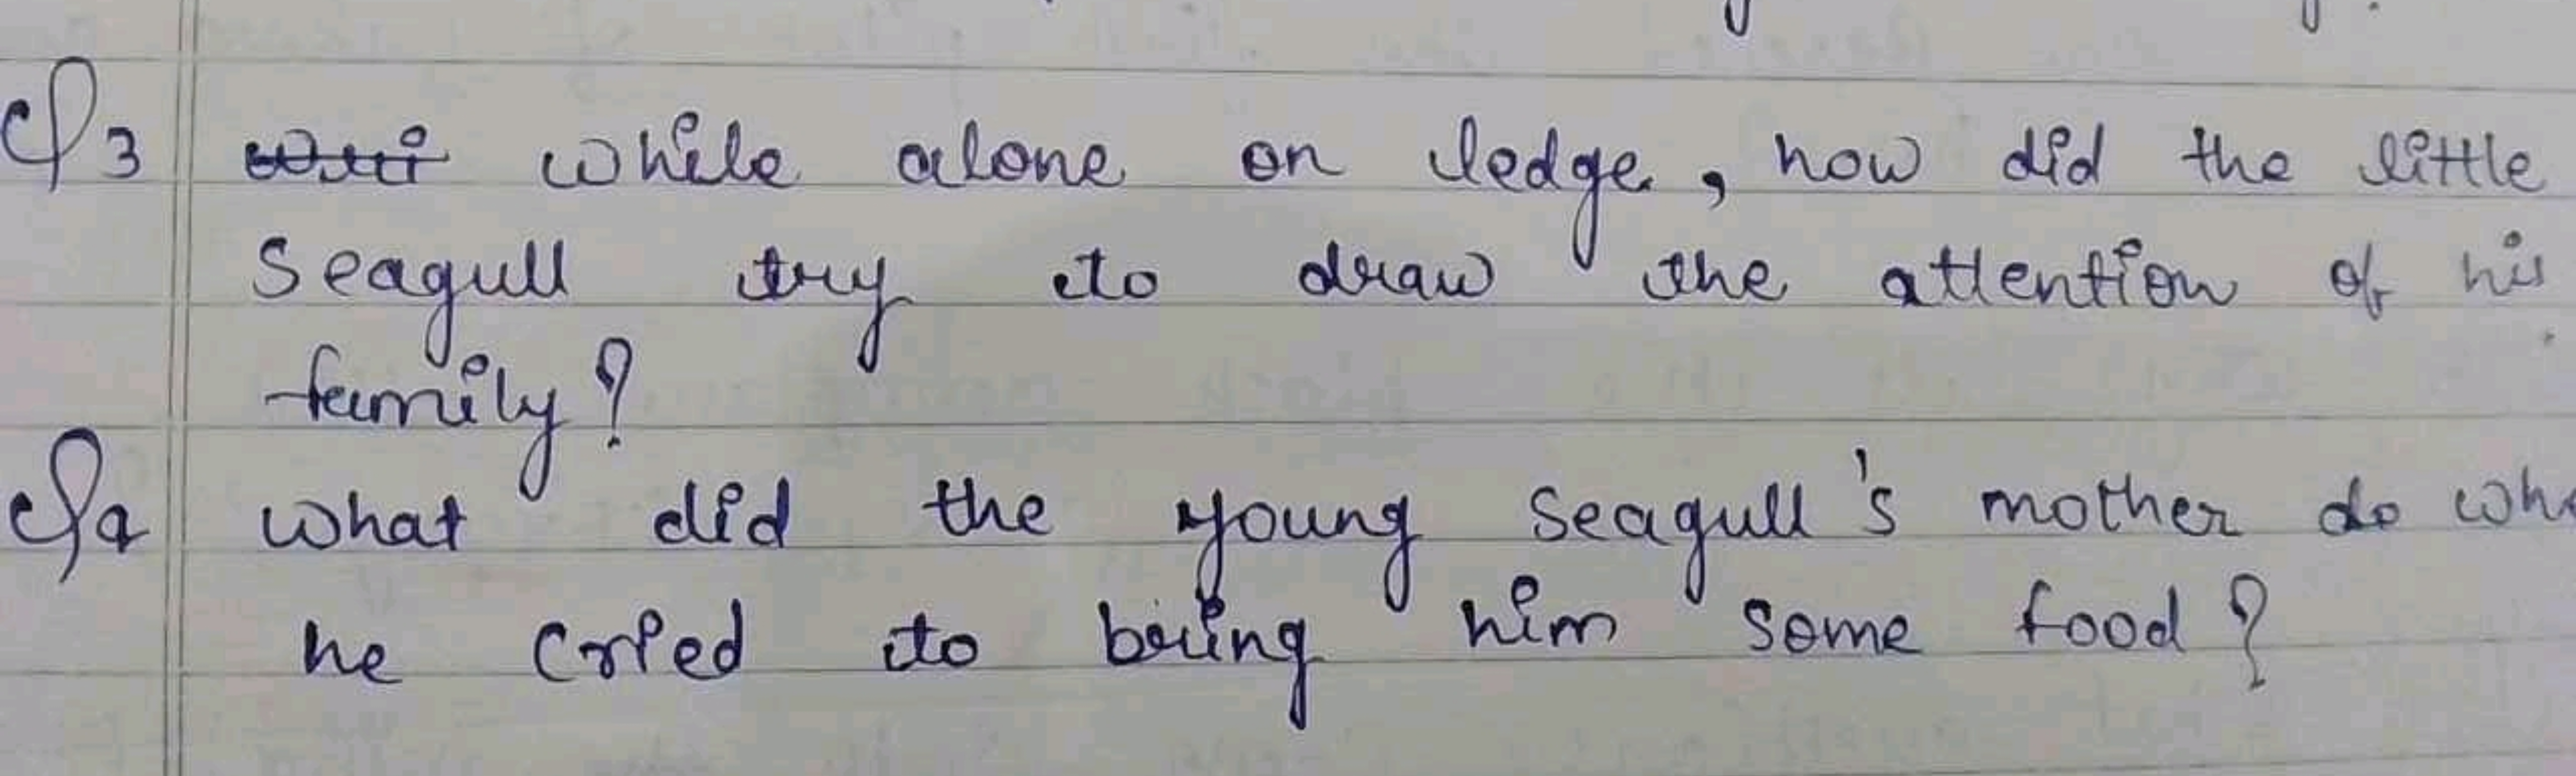 Q3 while alone on ledge, how did the little
Seagull try to draw the attention of his
family?
Q4 what did the young seagull's mother do
he cried to bring him some food?